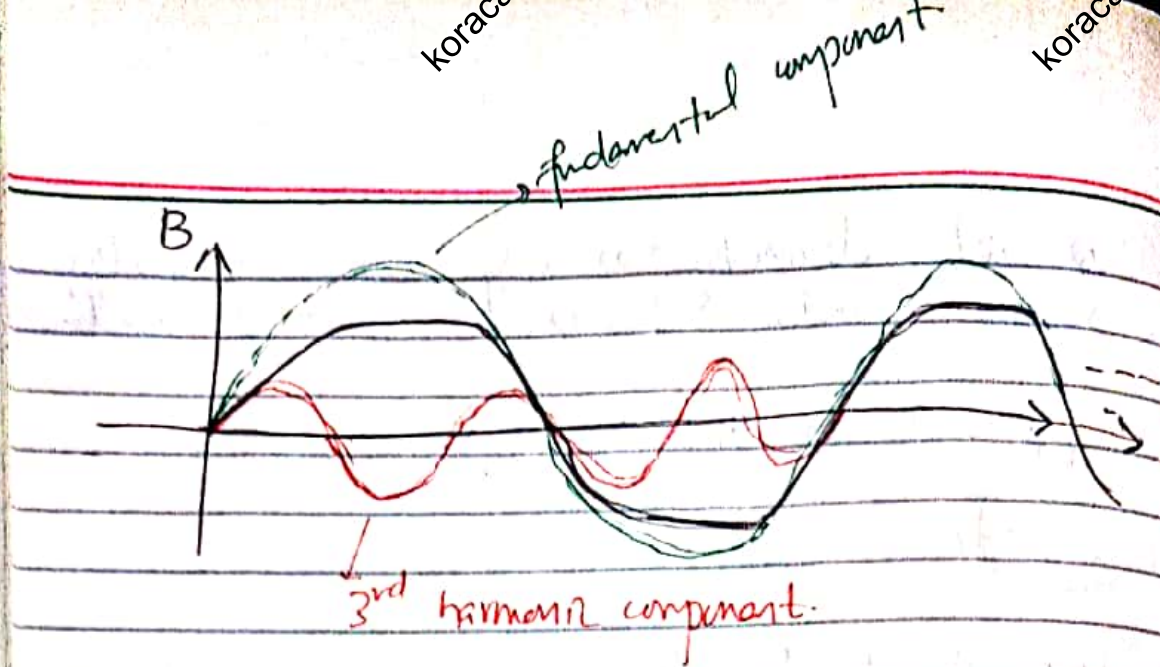 koraca
koraca
fundamental component
B
3rd harmonic component.